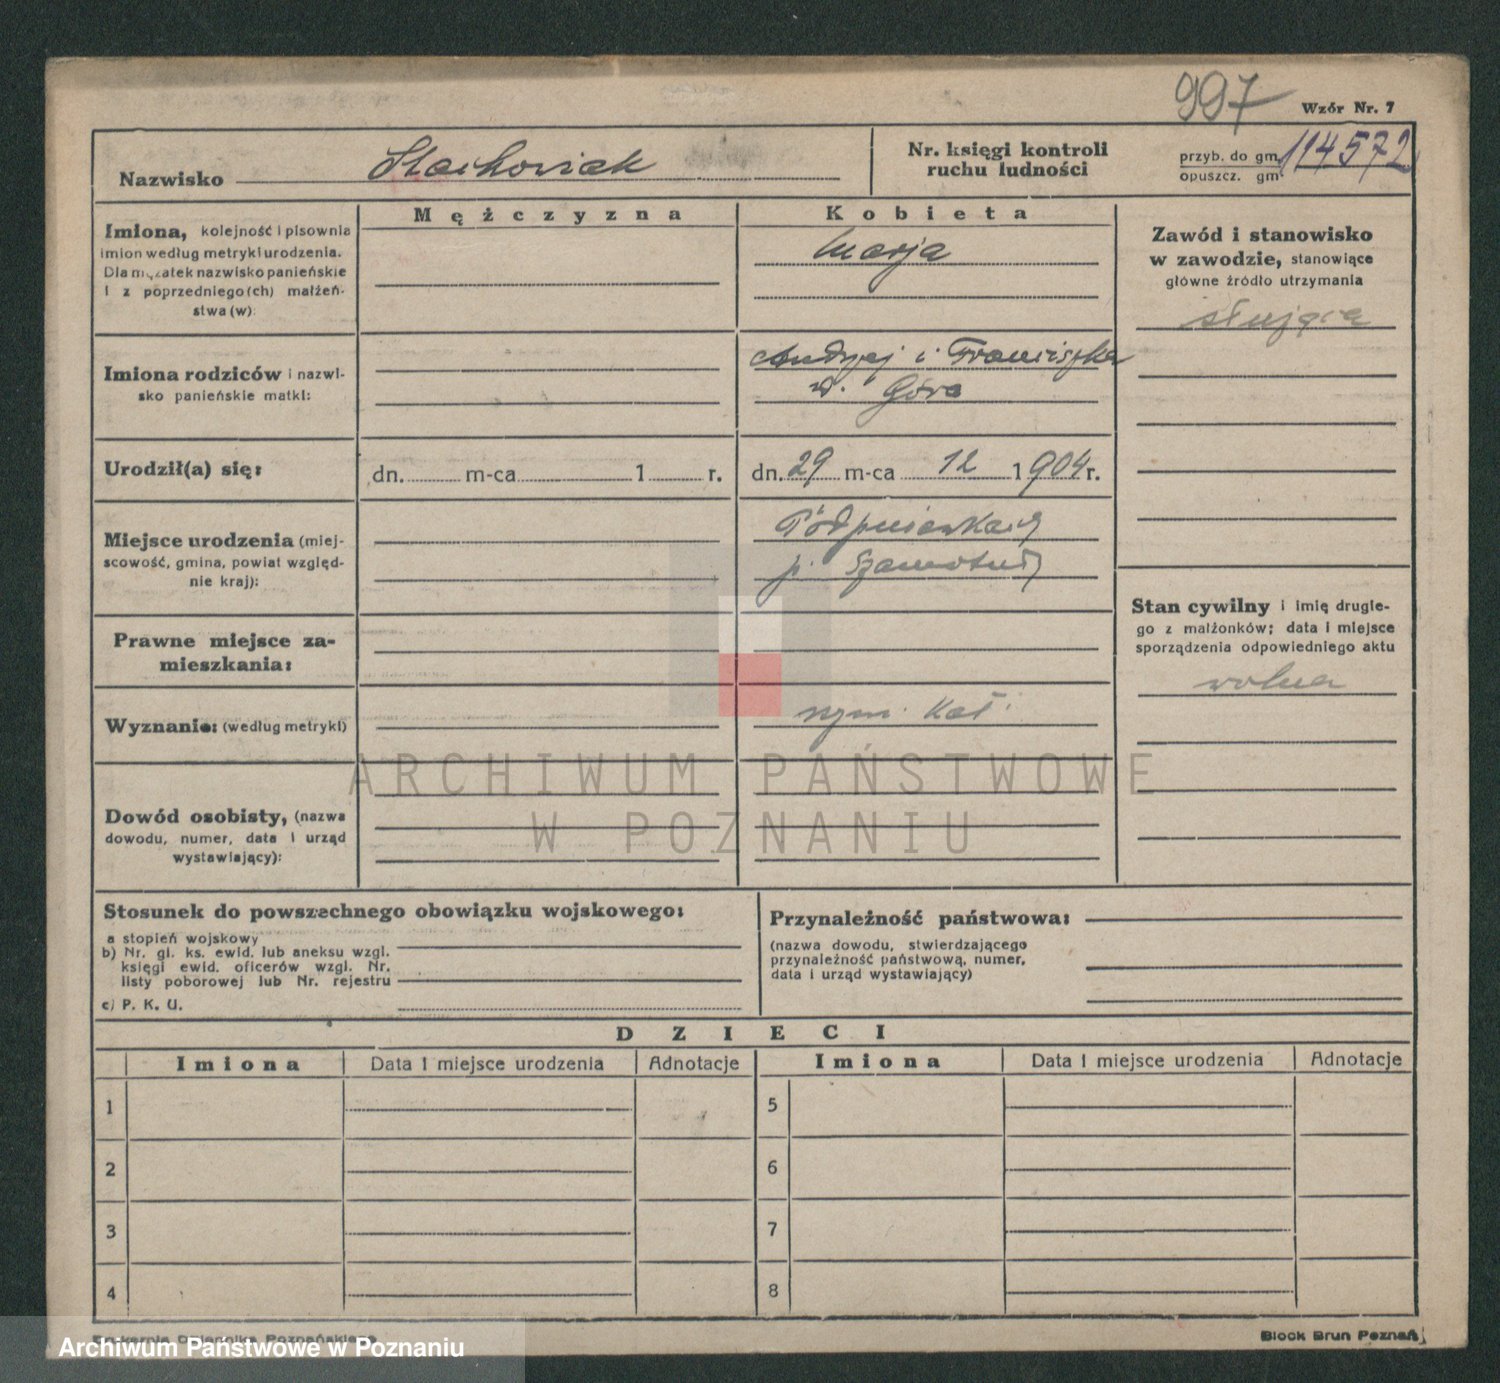 997
Wzór Nr. 7
Nazwisko Stachowiak
Nr. księgi kontroli
ruchu ludności
przyb. do gm.
opuszcz. gm.
114572
Mężczyzna
Kobieta
Imiona, kolejność i pisownia
imion według metryki urodzenia.
Dla mężatek nazwisko panieńskie
i z poprzedniego(ch) małżeń-
stwa(w):
Marja
Zawód i stanowisko
w zawodzie, stanowiące
główne źródło utrzymania
służąca
Imiona rodziców i nazwi-
sko panieńskie matki:
Andrzej i Franciszka
d. Góra
Urodził(a) się:
dn. m-ca 1 r.
dn. 29 m-ca 12 1904 r.
Miejsce urodzenia (miej-
scowość, gmina, powiat względ-
nie kraj):
p. Szamotuły
Stan cywilny i imię drugie-
go z małżonków; data i miejsce
sporządzenia odpowiedniego aktu
wolna
Prawne miejsce za-
mieszkania:
Wyznanie: (według metryki)
rzym. kat.
ARCHIWUM PAŃSTWOWE
W POZNANIU
Dowód osobisty, (nazwa
dowodu, numer, data i urząd
wystawiający):
Stosunek do powszechnego obowiązku wojskowego:
a stopień wojskowy
b) Nr. gł. ks. ewid. lub aneksu wzgl.
księgi ewid. oficerów wzgl. Nr.
listy poborowej lub Nr. rejestru
c) P. K. U.
Przynależność państwowa:
(nazwa dowodu, stwierdzającego
przynależność państwową, numer,
data i urząd wystawiający)
DZIECI
Imiona Data i miejsce urodzenia Adnotacje Imiona Data i miejsce urodzenia Adnotacje
1 5
2 6
3 7
4 8
Block Brun Poznań
Archiwum Państwowe w Poznaniu